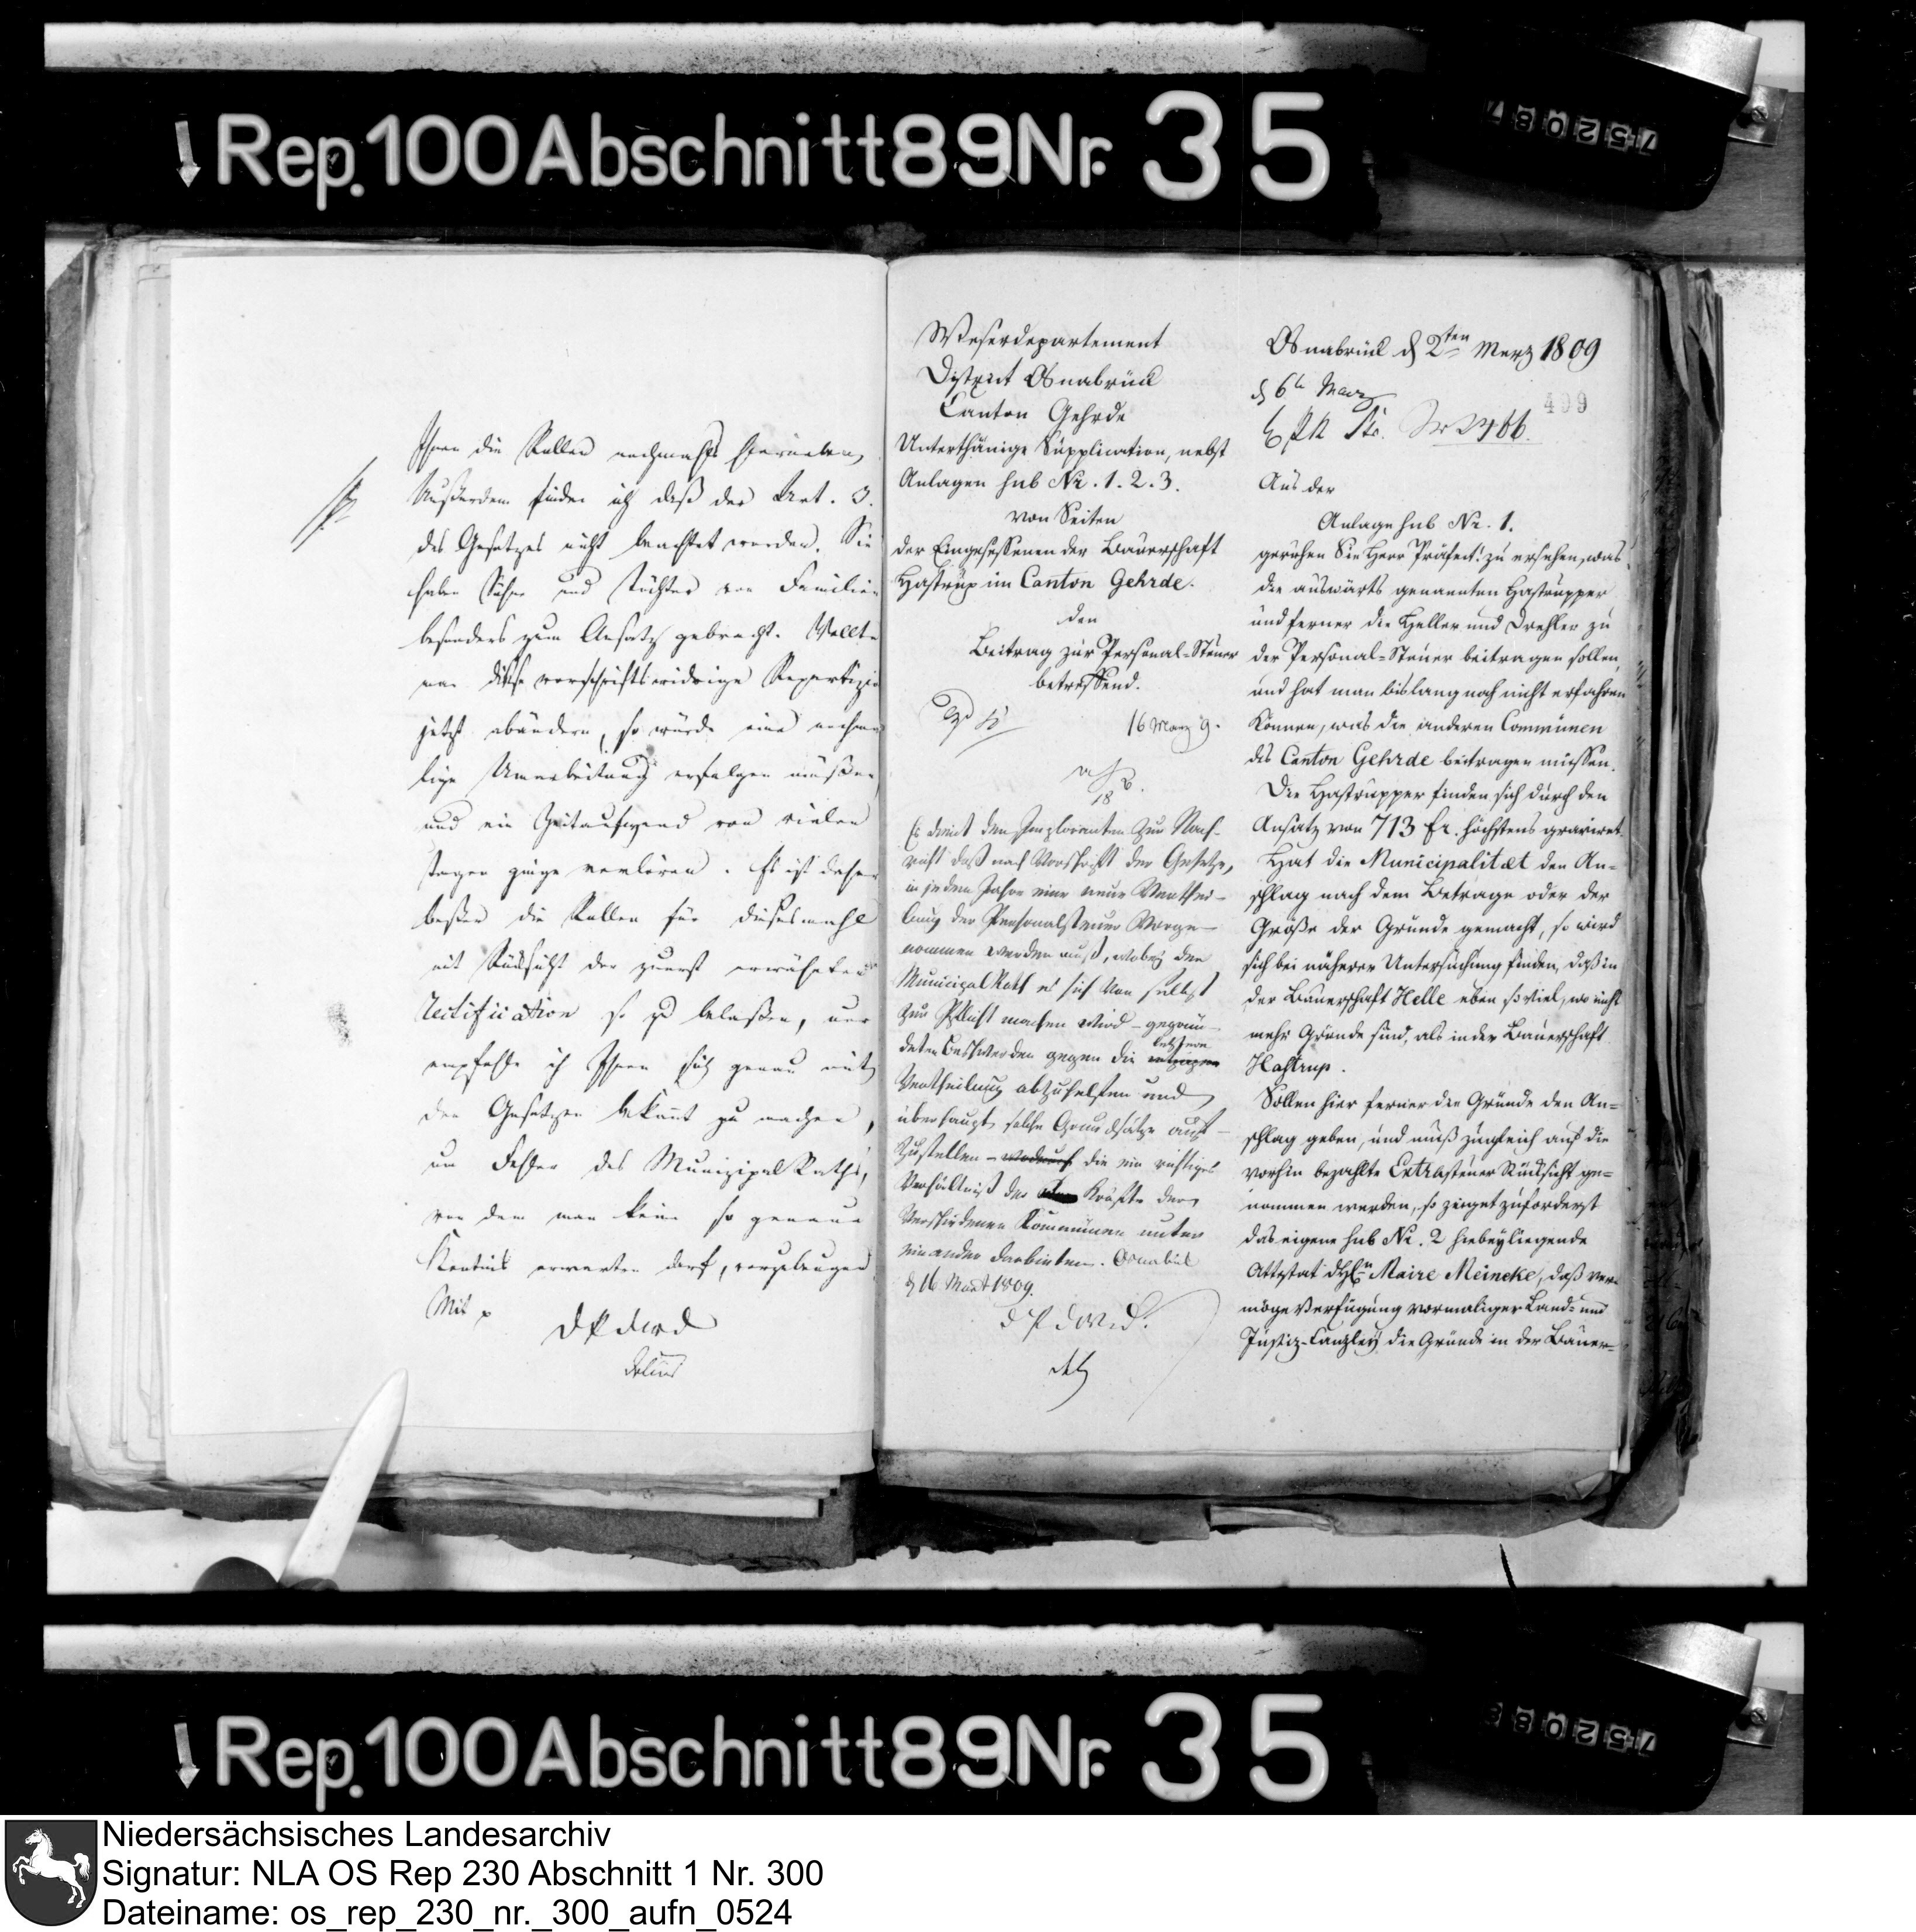 Rep. 100 Abschnitt 89 Nr. 35
752087
Ihnen die Rollen nochmahls hierneben
Außerdem finde ich daß der Art. 3.
des Gesetzes nicht beachtet worden. Sie
haben Söhne und Töchter von Familien
besonders zum Ansatz gebracht. Wollte
man diese vorschriftswidrige Repartizion
jetzt abändern, so würde eine nochma
lige Umarbeitung erfolgen müßen
und ein Zeitaufwand von vielen
Tagen ginge verloren. Es ist daher
beßer die Rollen für diesesmahl
mit Rücksicht der zuerst erwähnten
rectification so zu belaßen, nur
empfehle ich Ihnen sich genau mit
den Gesetzen bekannt zu machen,
um Fehler des Munizipal Raths,
von dem man keine so genaue
Kentnis erwarten darf, vorzubeugen
Mit
D P d W D
Delius
Weserdepartement
District Osnabrück
Canton Gehrde
Unterthänige Supplication, nebst
Anlagen sub Nr. 1. 2. 3.
von Seiten
der Eingesessenen der Bauerschaft
Hastrup im Canton Gehrde.
den
Beitrag zur Personal-Steuer
betreffend.
16 März 9.
18
Es dient den Imploranten zur Nach-
richt daß nach Vorschrift der Gesetze,
in jedem Jahre eine neue Verthei-
lung der Personalsteuer Vorge-
nommen werden muß, wobei der
Municipal Rath es sich von selbst
zur Pflicht machen wird - gegrün-
deten Beschwerden gegen die letztere
Vertheilung abzuhelfen und
überhaupt solche Grundsätze auf-
zustellen - wodurch die ein richtiges
Verhältniß der Kräfte der
Verschiedenen Kommunen unter
einander darbieten. Osnabrück
d 16 März 1809.
D P d W. D.
Osnabrück d 2ten Merz 1809
d 6t März
499
Nr 2466.
Aus der
Anlage sub Nr. 1.
geruhen Sie Herr Präfect! zu ersehen, was
die auswärts genannten Hastrupper
und ferner die Heller und Drehler zu
der Personal-Steuer beitragen sollen,
und hat man bislang noch nicht erfahren
können, was die anderen Communen
des Canton Gehrde beitragen müssen.
Die Hastrupper finden sich durch den
Ansatz von 713 fr. höchstens graviret.
Hat die Municipalitæt den An-
schlag nach dem Betrage oder der
Größe der Gründe gemacht, so wird
sich bei näherer Untersuchung finden, daß in
der Bauerschaft Helle eben so viel, wo nicht
mehr Gründe sind, als in der Bauerschaft
Hastrup.
Sollen hier ferner die Gründe den An-
schlag geben, und muß zugleich auf die
vorhin bezahlte Extrasteuer Rücksicht ge-
nommen werden, so zeiget zuforderst
das eigene sub Nr. 2 hiebeyliegende
Attestat des Hn Maire Meineke, daß ver-
möge Verfügung vormaliger Land- und
Justiz-Canzley die Gründe in der Bauer-
Rep. 100 Abschnitt 89 Nr. 35
Niedersächsisches Landesarchiv
Signatur: NLA OS Rep 230 Abschnitt 1 Nr. 300
Dateiname: os_rep_230_nr._300_aufn_0524